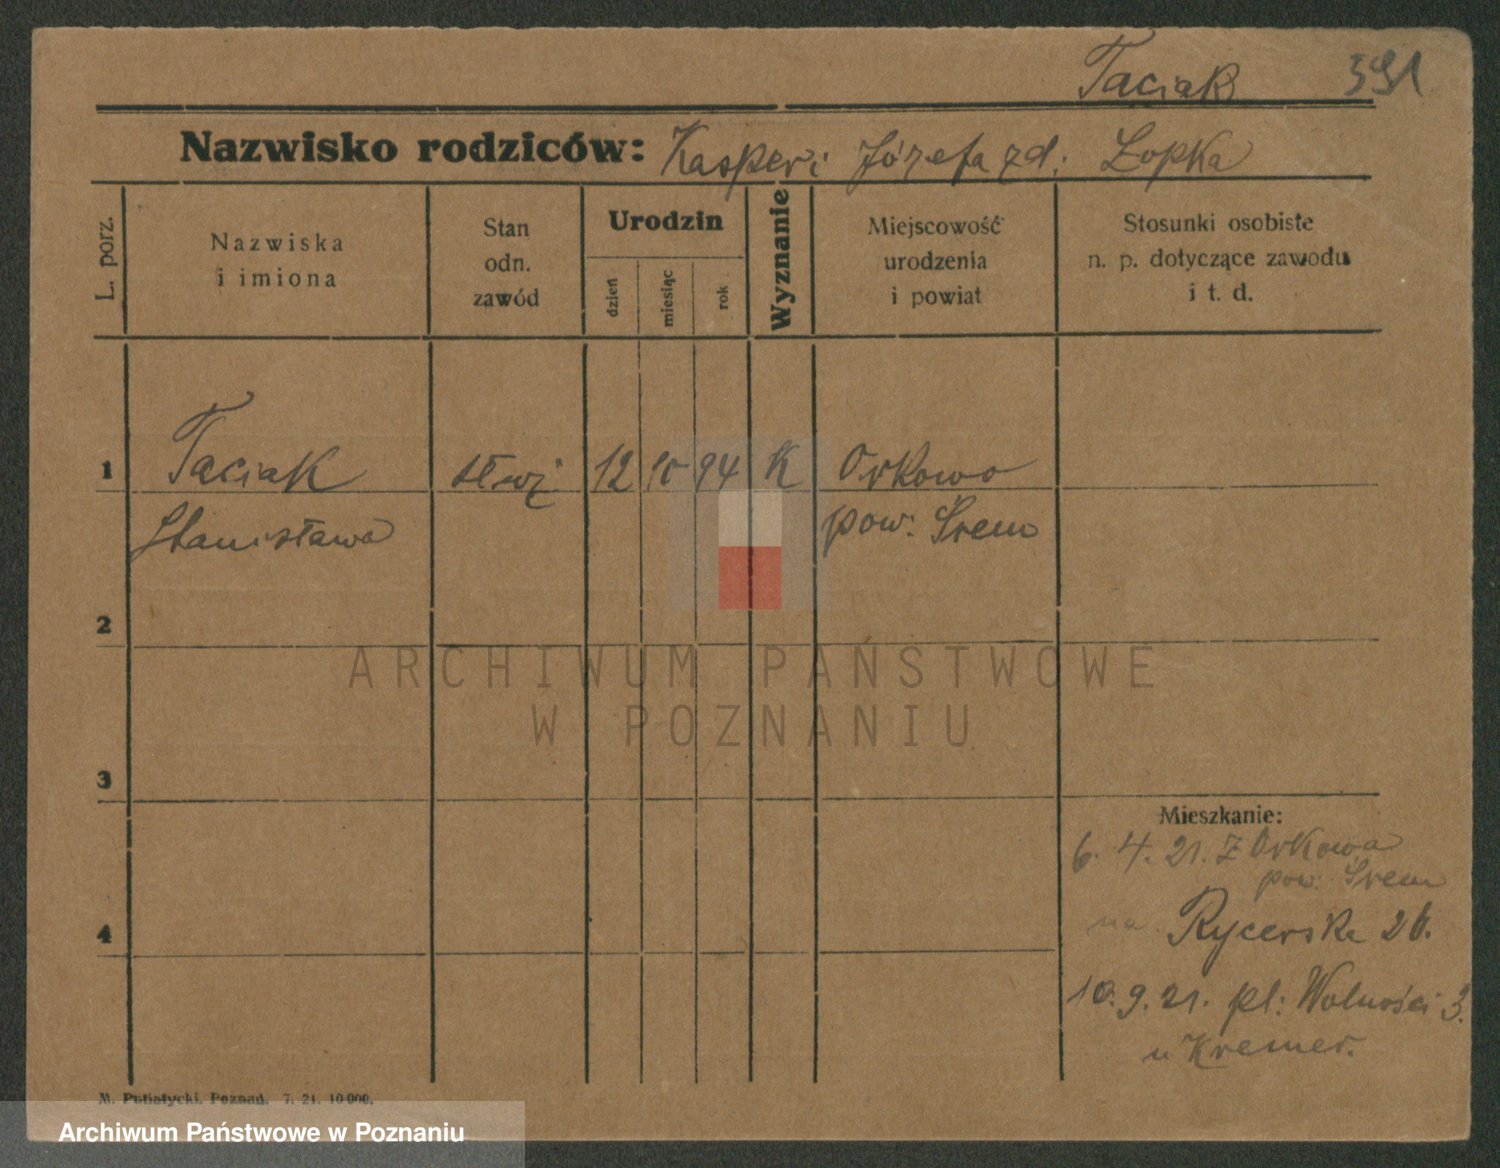 Taciak 391
Nazwisko rodziców: Kasper i Józefa zd. Łopka
L. porz.
Nazwiska
i imiona
Stan
odn.
zawód
Urodzin
dzień
miesiąc
rok
Wyznanie
Miejscowość
urodzenia
i powiat
Stosunki osobiste
n. p. dotyczące zawodu
i t. d.
1 Taciak służ 12 10 94 K Orkowo
Stanisława pow. Śrem
2
ARCHIWUM PAŃSTWOWE
W POZNANIU
3
Mieszkanie:
6. 4. 21. z Orkowa
pow. Śrem
4 na Rycerska 26.
10. 9. 21. pl. Wolności 3.
u Kremer.
M. Putiatycki, Poznań. 7. 21. 10 000.
Archiwum Państwowe w Poznaniu